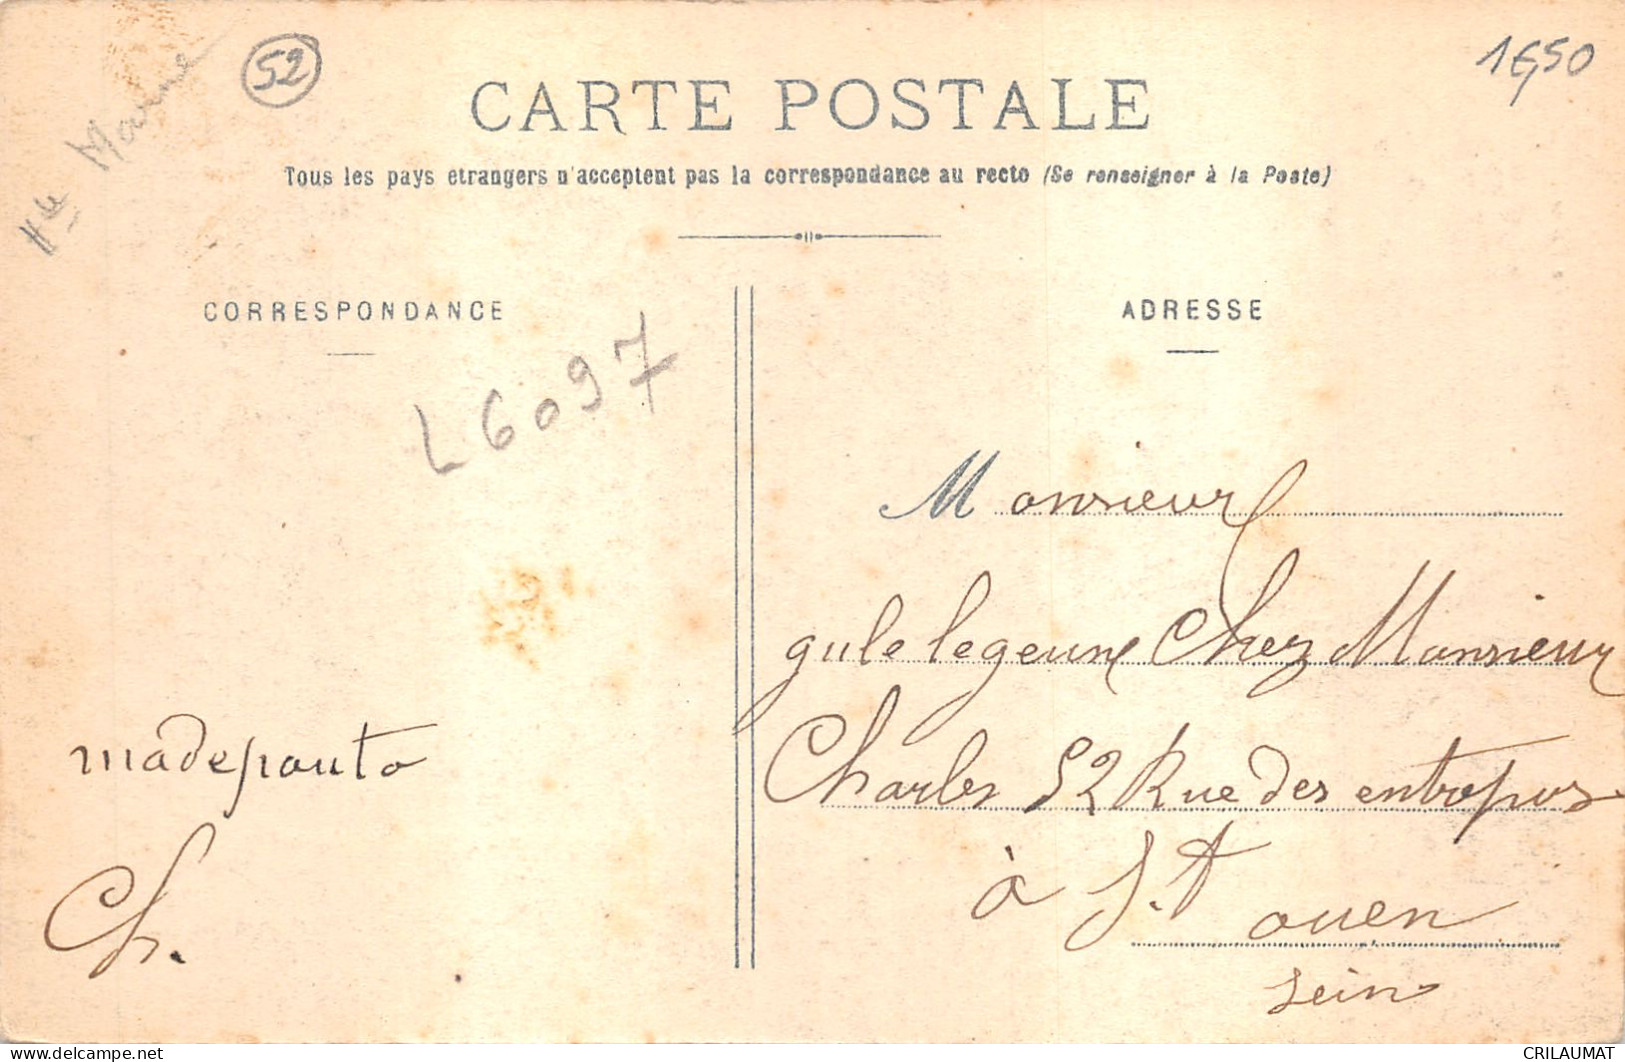 Hte Marne
52
1€50
CARTE POSTALE
Tous les pays etrangers n'acceptent pas la correspondance au recto (Se renseigner à la Poste)
CORRESPONDANCE
ADRESSE
L6097
Monsieur
gule legeune Chez Monsieur
Charles 52 Rue des entropos
à St ouen
Sein
madepauto
Ch.
CRILAUMAT